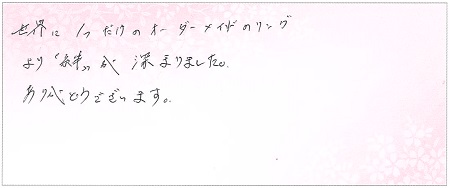 世界に1つだけのオーダーメイドのリング
より“絆”が深まりました。
ありがとうございます。